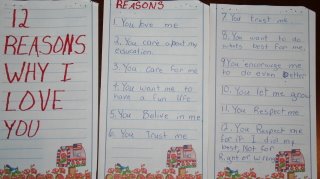 12
REASONS
WHY I
LOVE
YOU
REASONS
1. You love me
2. You care about my
education.
3. You care for me
4. You want me to
have a fun life
5. You Belive in me
6. You Trust me
7. You trust me
8. You want to do
whats best for me.
9. You encourage me
to do even better
10. You let me grow
11. You Respect me
12. You Respect me
for if I did my
best, Not for
Right or wrong